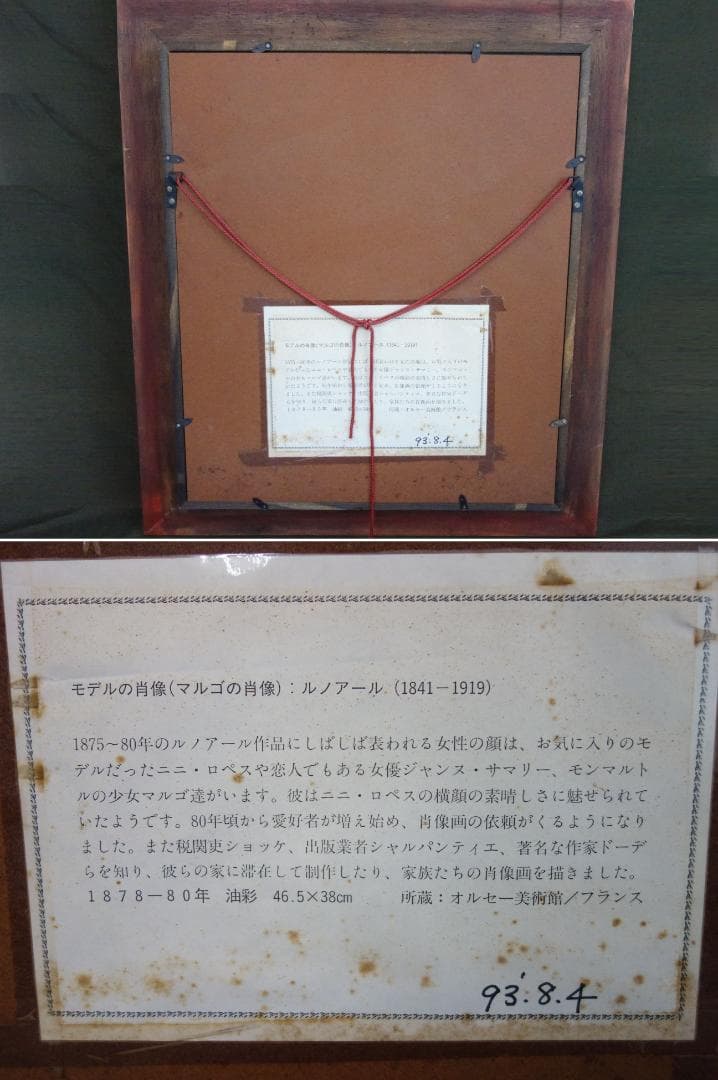 モデルの肖像(マルゴの肖像):ルノアール (1841-1919)
1875~80年のルノアール作品にしばしば表われる女性の顔は、お気に入りのモ
デルだったニニ・ロペスや恋人でもある女優ジャンヌ・サマリー、モンマルト
ルの少女マルゴ達がいます。彼はニニ・ロペスの横顔の素晴しさに魅せられて
いたようです。80年頃から愛好者が増え始め、肖像画の依頼がくるようになり
ました。また税関吏ショッケ、出版業者シャルパンティエ、著名な作家ドーデ
らを知り、彼らの家に滞在して制作したり、家族たちの肖像画を描きました。
1878-80年 油彩 46.5×38cm 所蔵:オルセー美術館/フランス
93'.8.4